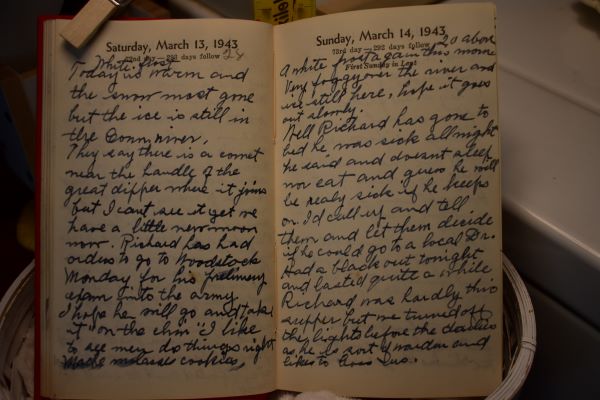 Saturday, March 13, 1943
72nd day—293 days follow
28
White frost
Today is warm and
the snow most gone
but the ice is still in
the Conn, river,
They say there is a comet
near the handle of the
great dipper where it joins
but I cant see it yet we
have a little new moon
now. Richard has had
orders to go to Woodstock
Monday for his prelimeny
exam into the army.
I hope he will go and take
it "on the chin" I like
to see men do things right
Made molasses cookies
Sunday, March 14, 1943
73rd day—292 days follow
First Sunday in Lent
20 above
A white frost again this morn
Very foggy over the river and
ice still here, hope it goes
out slowly.
Well Richard has gone to
bed he was sick all night
he said and doesnt sleep
nor eat and guess he will
be realy sick if he keeps
on. I'd call up and tell
them and let them decide
if he could go to a local Dr.
Had a black out tonight
and lasted quite a while
Richard was hardly thru
supper but we turned off
the lights before the
as he is sort of warden and
likes to us.